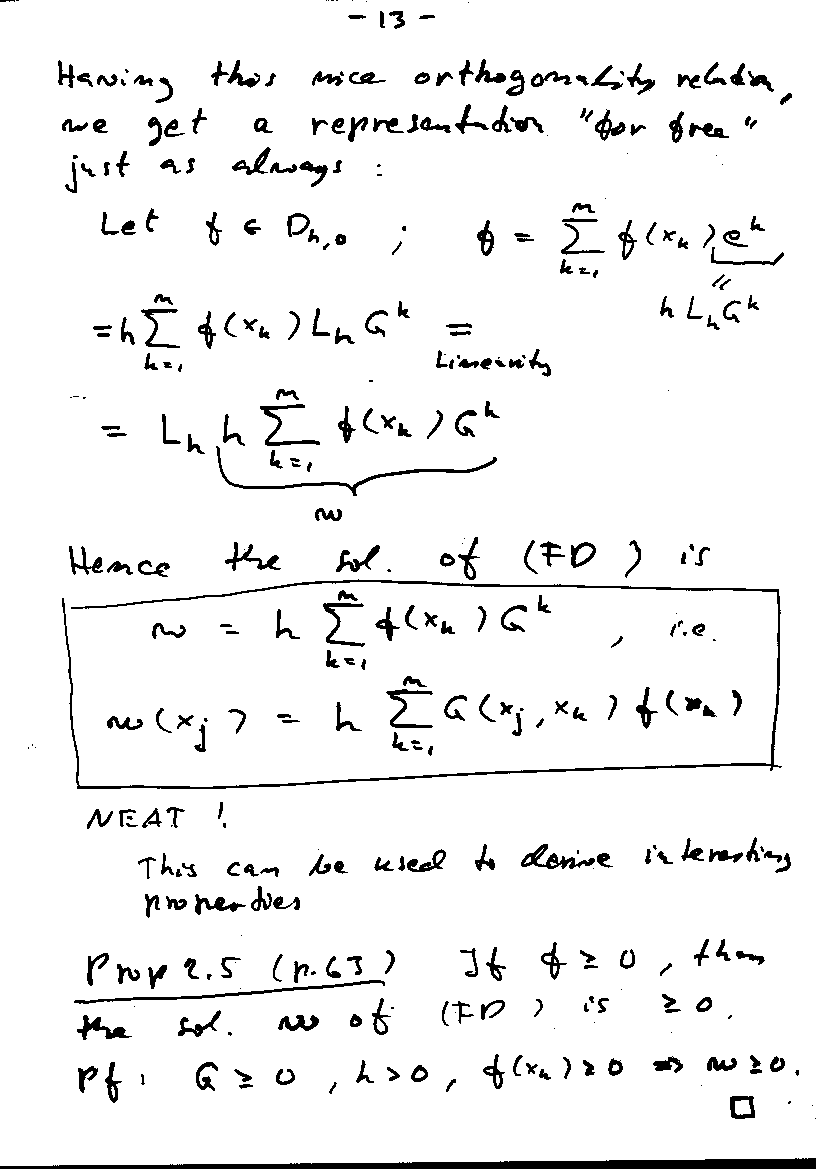 - 13 -
Having this nice orthogonality relation,
we get a representation "for free"
just as always :
Let f ∈ D_{h,0} ; f = \sum_{k=1}^{n} f(x_k) e^k
= h \sum_{k=1}^{n} f(x_k) L_h G^k = " h L_h G^k
Linearity
= L_h h \sum_{k=1}^{n} f(x_k) G^k
w
Hence the sol. of (FD) is
w = h \sum_{k=1}^{n} f(x_k) G^k , i.e.
w(x_j) = h \sum_{k=1}^{n} G(x_j, x_k) f(x_k)
NEAT !
This can be used to derive interesting
properties
Prop 2.5 (p.63) If f ≥ 0, then
the sol. w of (FD) is ≥ 0.
Pf: G ≥ 0, h > 0, f(x_k) ≥ 0 ⇒ w ≥ 0.
□